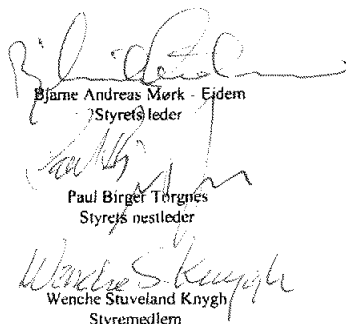 Bjarne Andreas Mørk - Eidem
Styrets leder
Paul Birger Torgnes
Styrets nestleder
Wenche S. Knygh
Wenche Stuveland Knygh
Styremedlem